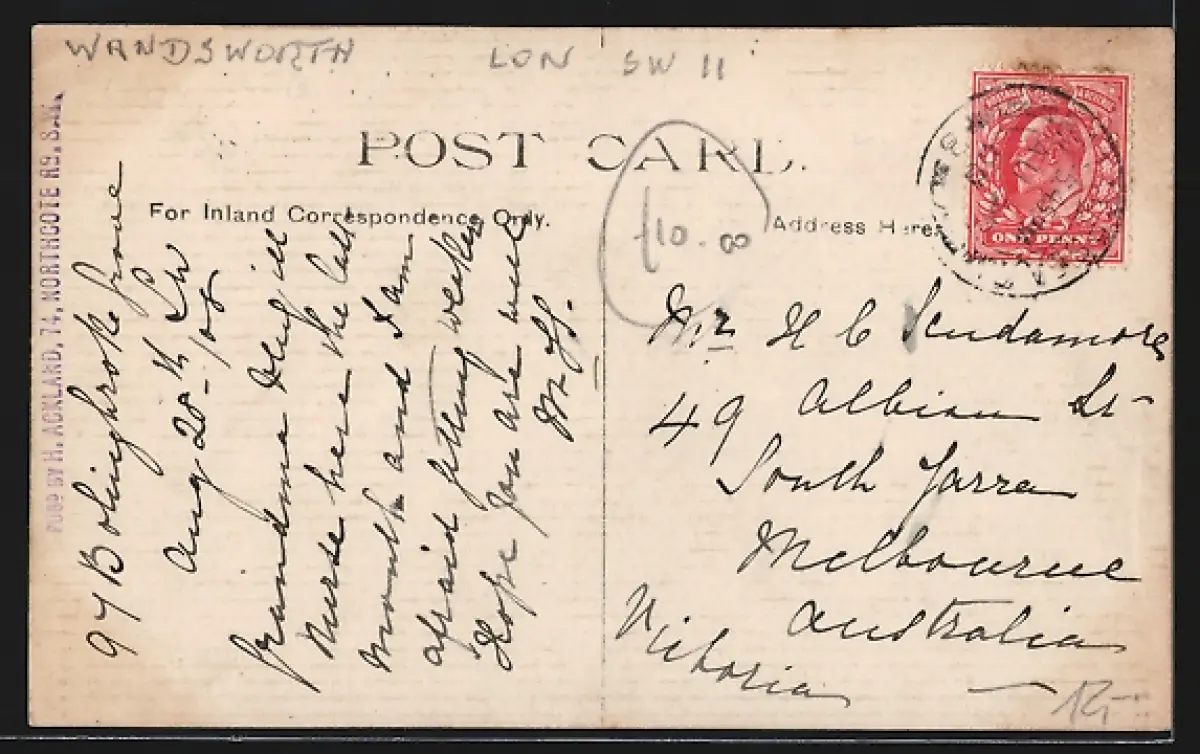 WANDSWORTH LON SW 11
PUBD BY H. ACKLAND, 74, NORTHCOTE RD. S.W.
POST CARD.
For Inland Correspondence Only.
Address Here
£10.00
ONE PENNY
97 Bolingbroke Grove
Aug 28th
/08
Grandma very ill
Nurse here the last
month and I am
afraid getting weaker
Hope you are well
Mr H C Scudamore
49 Albion St
South Yarra
Melbourne
Australia
Victoria